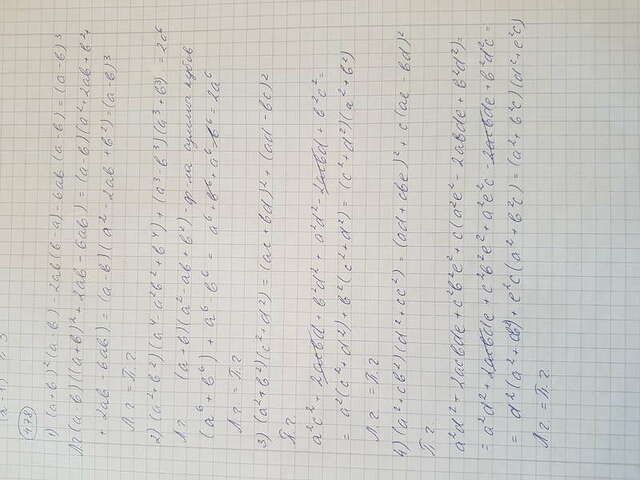 478
1) (a+b)²(a-b) - 2ab(b-a) - 6ab(a-b) = (a-b)³
(a-b)((a+b)² + 2ab - 6ab) = (a-b)(a²+2ab+b²+
+2ab-6ab) = (a-b)(a²-2ab+b²) = (a-b)³
Л.ч = П.ч
2) (a²+b²)(a⁴-a²b²+b⁴) + (a³-b³)(a³+b³) = 2a⁶
Л.ч (a+b)(a²-ab+b²) - ф-ла сумма кубов
(a⁶+b⁶) + a⁶-b⁶ = a⁶+b⁶+a⁶-b⁶ = 2a⁶
Л.ч = П.ч
3) (a²+b²)(c²+d²) = (ac+bd)² + (ad-bc)²
П.ч
a²c²+2acbd+b²d²+a²d²-2acbd+b²c² =
= a²(c²+d²)+b²(c²+d²) = (c²+d²)(a²+b²)
Л.ч = П.ч
4) (a²+cb²)(d²+ce²) = (ad+cbe)² + c(ae-bd)²
П.ч
a²d²+2acbde+c²b²e²+c(a²e²-2abde+b²d²) =
= a²d²+2acbde+c²b²e²+a²e²c-2acbde+b²d²c =
= d²(a²+cb²)+e²c(a²+b²c) = (a²+b²c)(d²+e²c)
Л.ч = П.ч